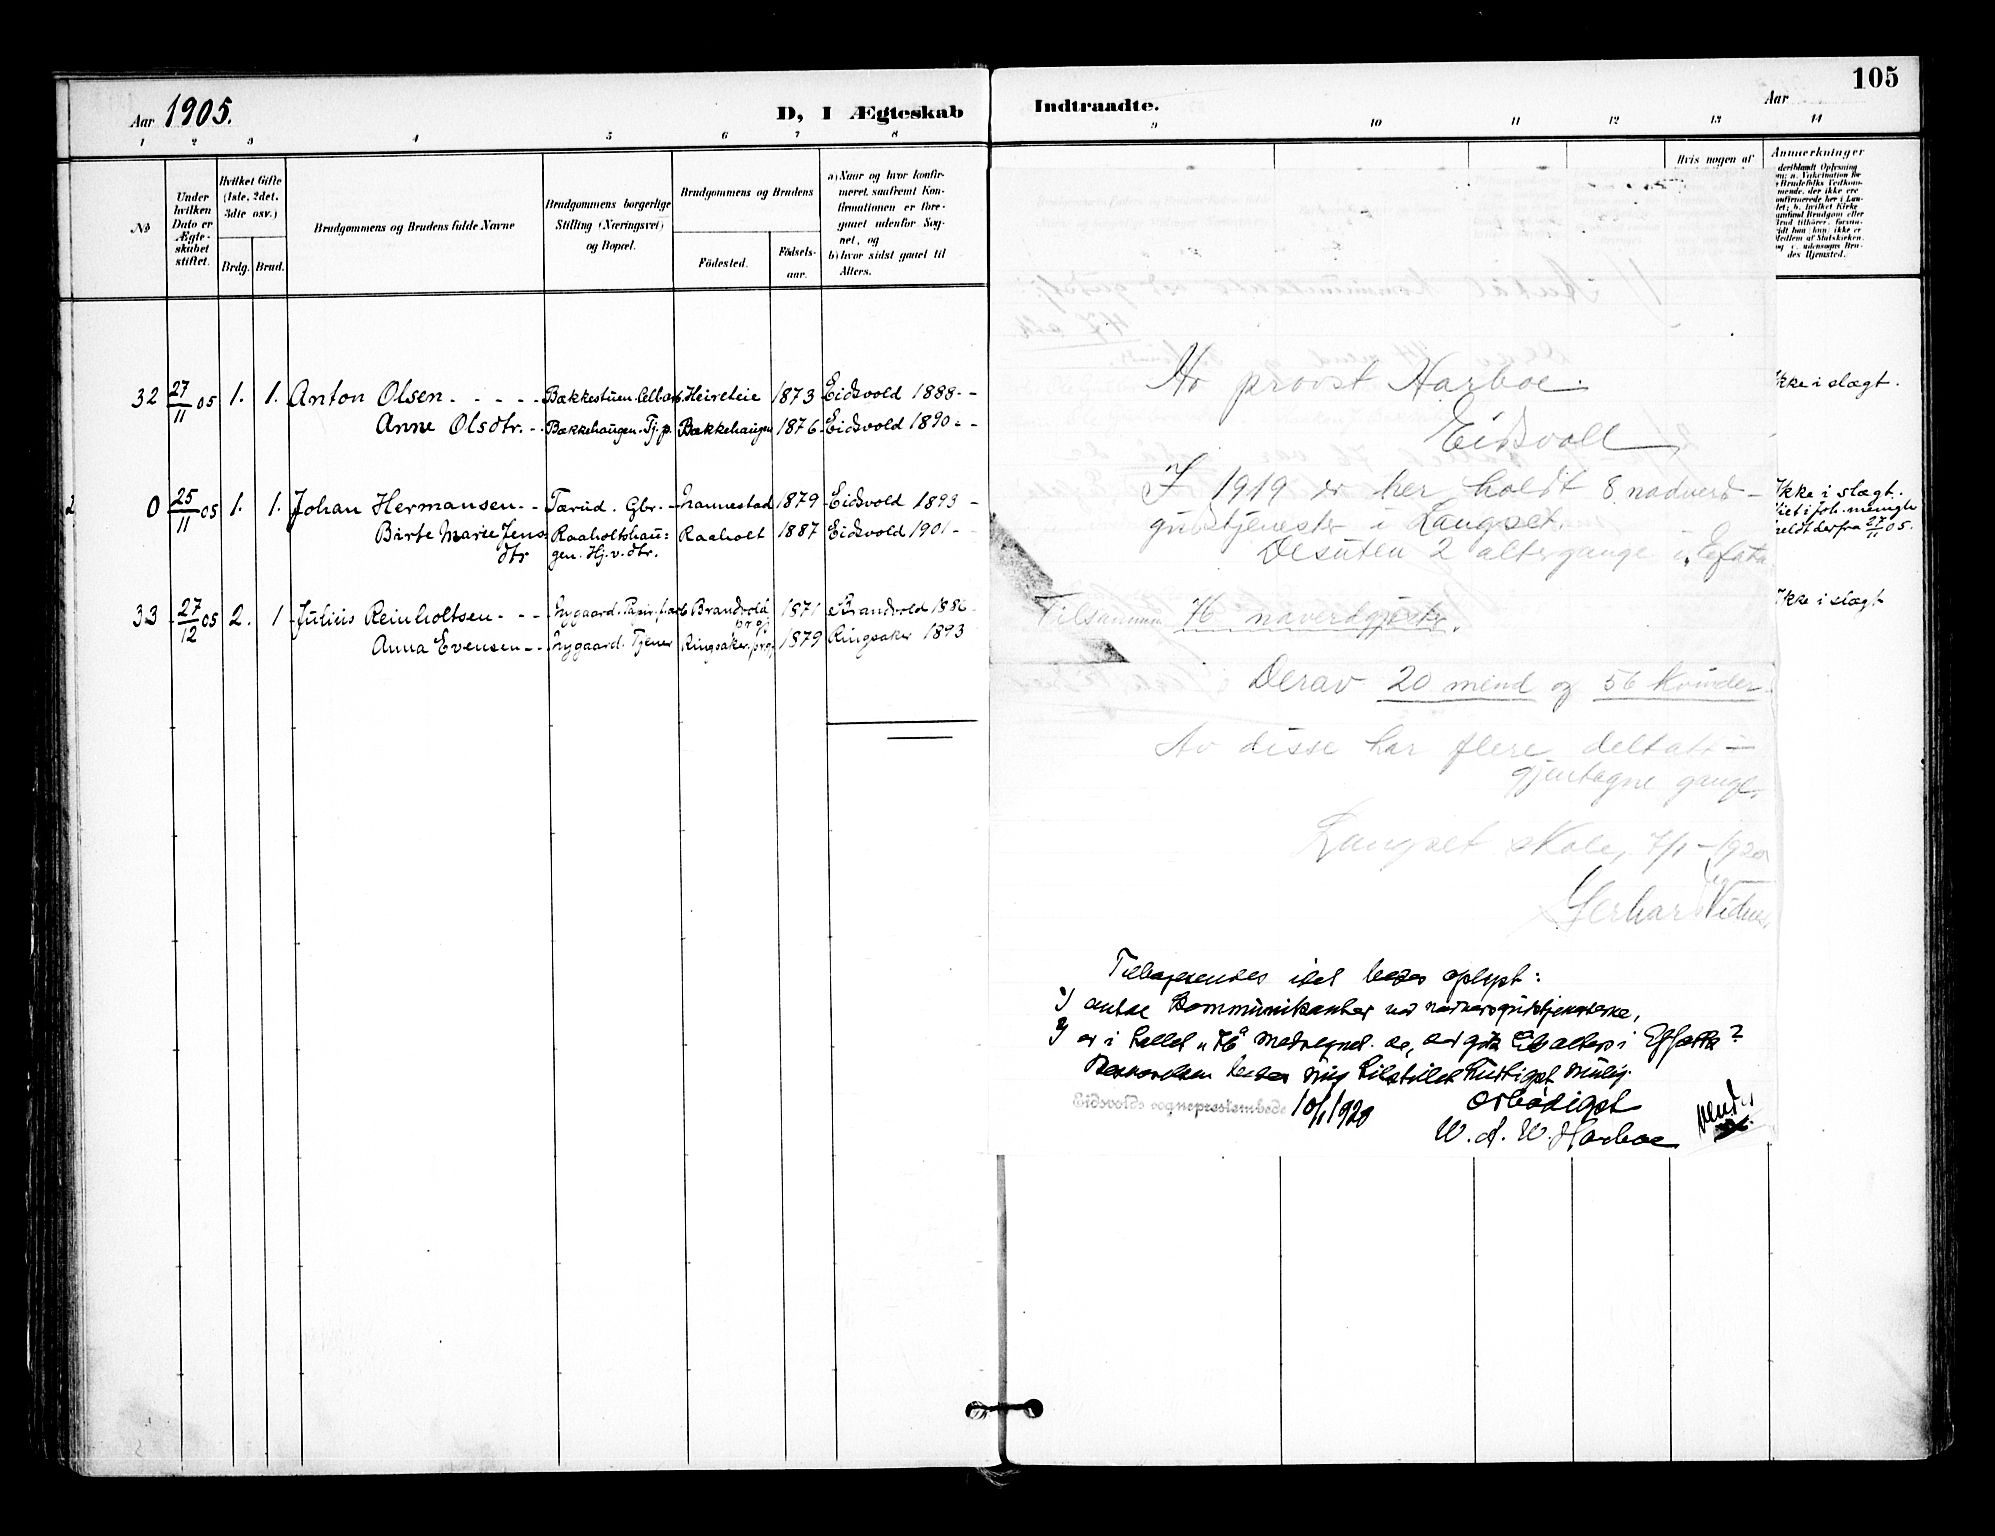 Aar 1905.
D, I Ægteskab
1 2 3 4 5 6 7 8
№
Under hvilken Dato er Ægteskabet stiftet.
Hvilket Gifte (1ste, 2det, 3die osv.)
Brdg. Brud.
Brudgommens og Brudens fulde Navne
Brudgommens borgerlige Stilling (Næringsvei) og Bopæl.
Brudgommens og Brudens
Födested. Födsels-aar.
a) Naar og hvor konfir-
meret, saafremt Kon-
firmationen er fore-
gaaet udenfor Sog-
net, og
b) hvor sidst gaaet til
Alters.
32 27/11 05 1. 1. Anton Olsen Bækkestuen. Heireteie 1873 Eidsvold 1888
Anne Olsdtr. Bækkehaugen. Tj.p. Bækkehaugen 1876 Eidsvold 1890
0 25/11 05 1. 1. Johan Hermansen Tærud. Gbr. Nannestad 1879 Eidsvold 1893
Birte Marie Jens Raaholtshau: Raaholt 1887 Eidsvold 1901
dtr gen. Hj.v.dtr.
33 27/12 05 2. 1 Julius Reinholtsen Nygaard. Brandvold 1871 Brandvold 1886
prgj
Anna Evensen Nygaard. Tjener Ringsaker prgj 1879 Ringsaker 1893
105
Indtraadte. Aar
9 10 11 12 13 14
Hvis nogen af
Anmerkninger
Ikke i slægt.
Ikke i slægt.
27/11 05.
Ikke i slægt
Hr provst Harboe.
Eidsvoll
I 1919 er her holdt 8 nadverd-
gudstjenester i Langset.
Desuten 2 altergange i Effata
Tilsammen 76
Derav 20 mend og 56 kvinder.
Av disse har flere deltatt
gjentagne gange.
Langset skole, 7/1-1920
Gerhard
Tilbagesendes idet bedes oplyst:
1) antal kommunikanter ved nadverdgudstjenesterne,
2) er i tallet "76" medregnet de, der gik til alters i Effatta?
Besvarelsen bedes mig tilstillet hurtigst mulig.
Eidsvold sogneprestembede 10/1 1920
Ærbødigst
W. A. W. Harboe
vend